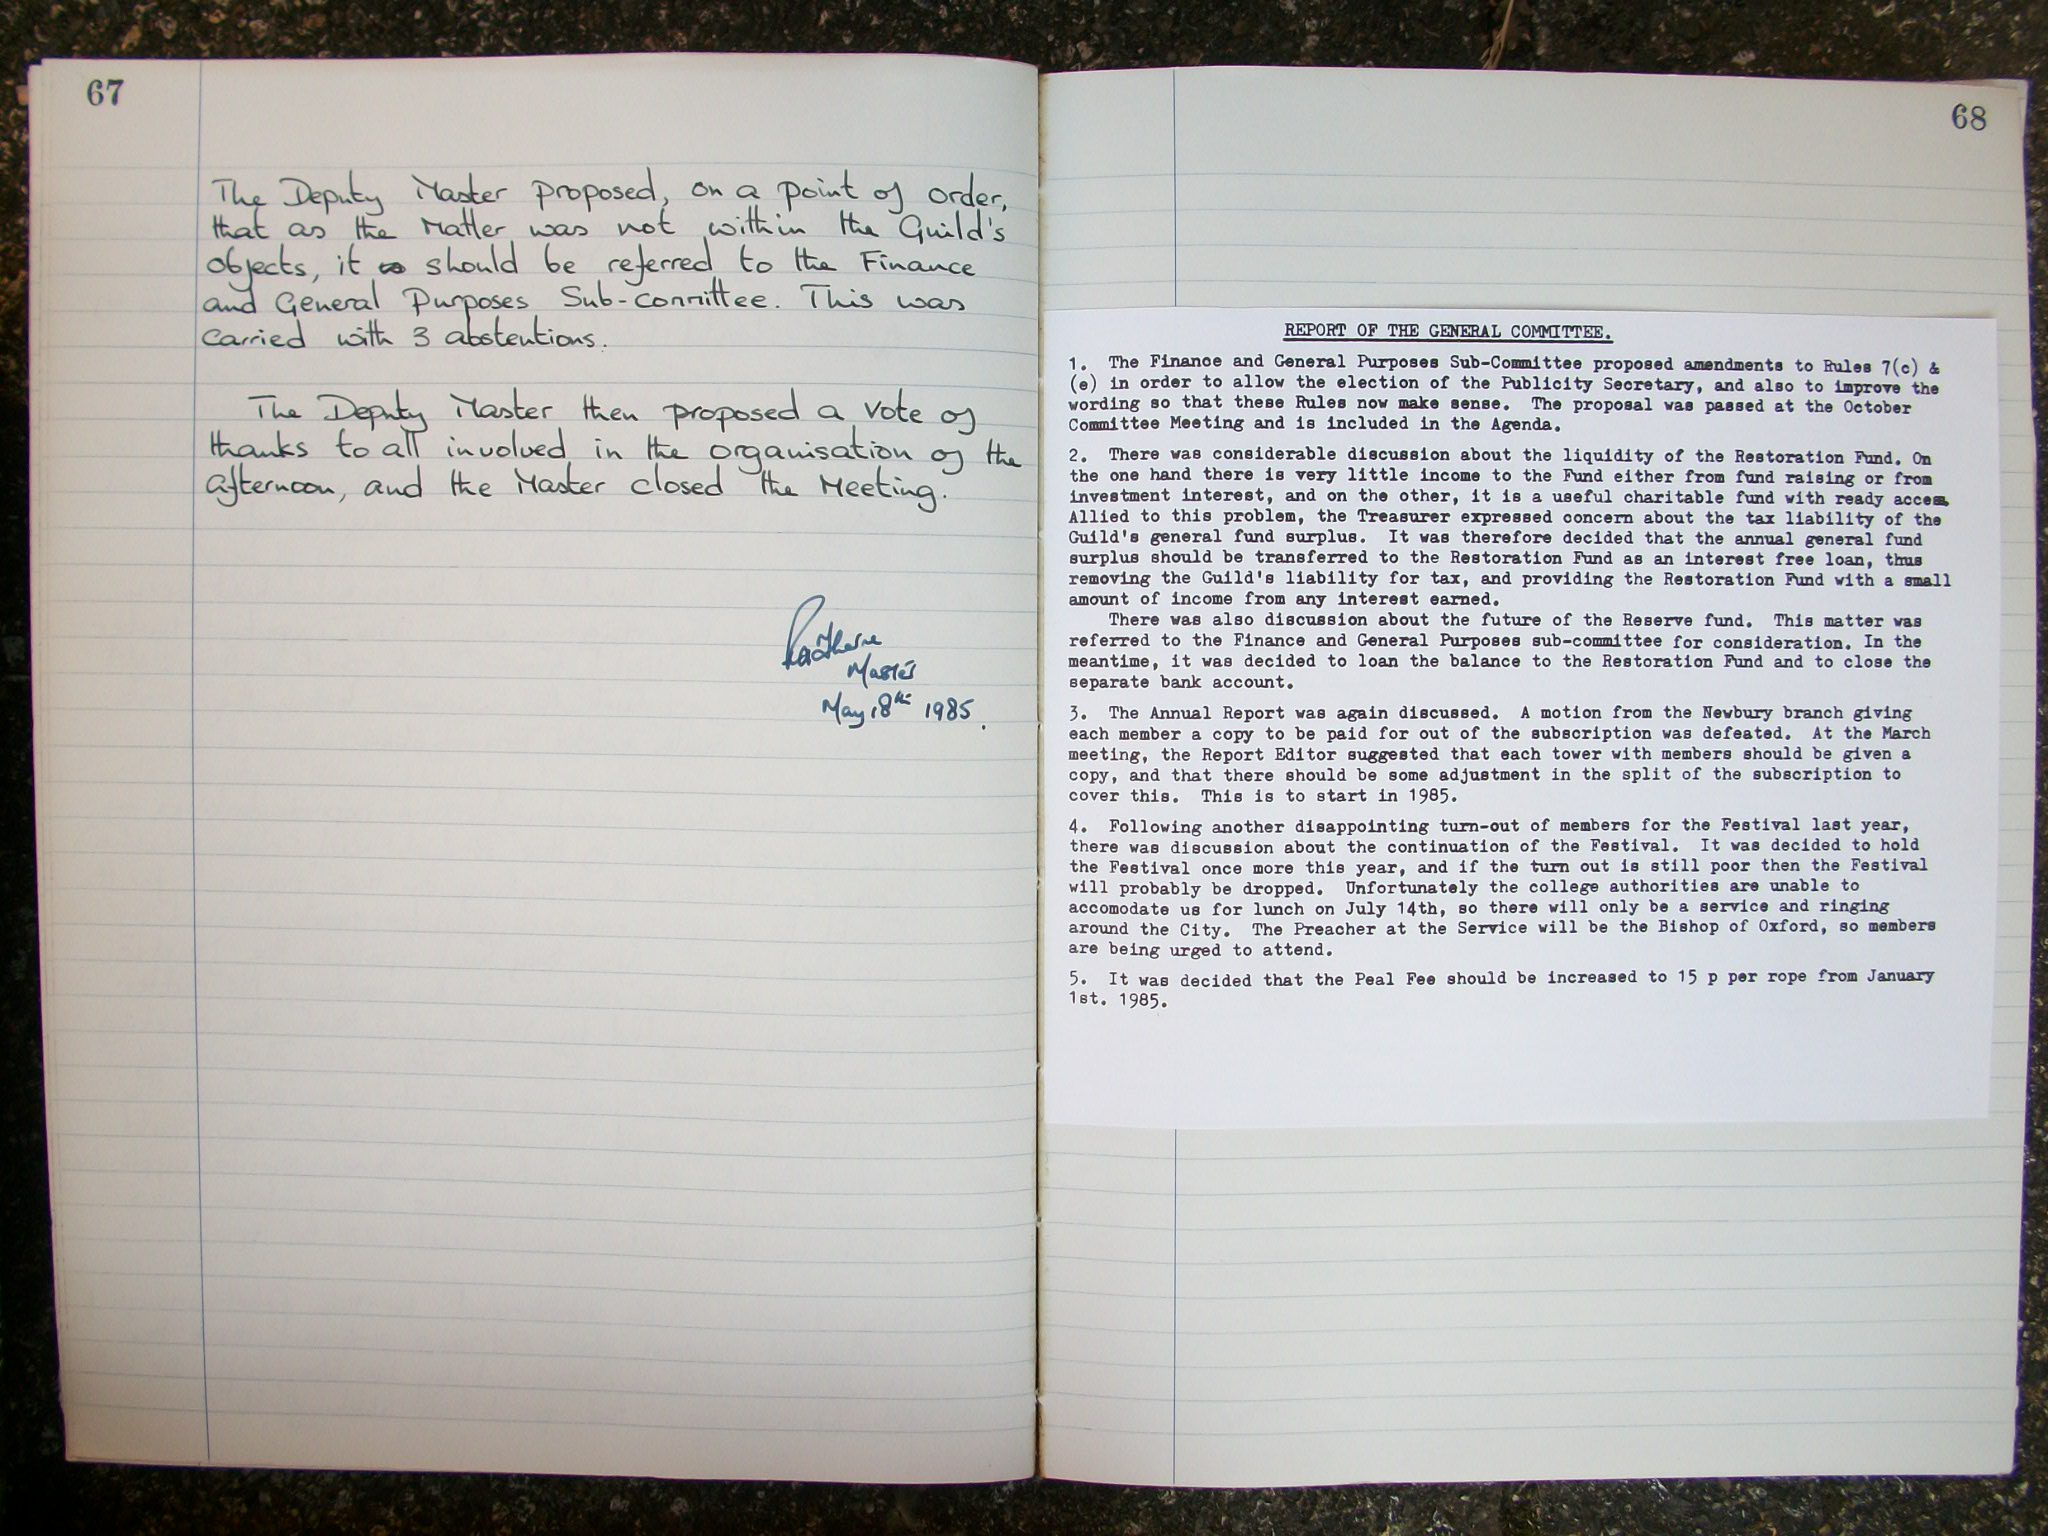 67
The Deputy Master proposed, on a point of order,
that as the Matter was not within the Guild's
objects, it should be referred to the Finance
and General Purposes Sub-committee. This was
carried with 3 abstentions.
The Deputy Master then proposed a vote of
thanks to all involved in the organisation of the
afternoon, and the Master closed the Meeting.
Master
May 18th 1985.
68
REPORT OF THE GENERAL COMMITTEE.
1. The Finance and General Purposes Sub-Committee proposed amendments to Rules 7(c) &
(e) in order to allow the election of the Publicity Secretary, and also to improve the
wording so that these Rules now make sense. The proposal was passed at the October
Committee Meeting and is included in the Agenda.
2. There was considerable discussion about the liquidity of the Restoration Fund. On
the one hand there is very little income to the Fund either from fund raising or from
investment interest, and on the other, it is a useful charitable fund with ready access
Allied to this problem, the Treasurer expressed concern about the tax liability of the
Guild's general fund surplus. It was therefore decided that the annual general fund
surplus should be transferred to the Restoration Fund as an interest free loan, thus
removing the Guild's liability for tax, and providing the Restoration Fund with a small
amount of income from any interest earned.
There was also discussion about the future of the Reserve fund. This matter was
referred to the Finance and General Purposes sub-committee for consideration. In the
meantime, it was decided to loan the balance to the Restoration Fund and to close the
separate bank account.
3. The Annual Report was again discussed. A motion from the Newbury branch giving
each member a copy to be paid for out of the subscription was defeated. At the March
meeting, the Report Editor suggested that each tower with members should be given a
copy, and that there should be some adjustment in the split of the subscription to
cover this. This is to start in 1985.
4. Following another disappointing turn-out of members for the Festival last year,
there was discussion about the continuation of the Festival. It was decided to hold
the Festival once more this year, and if the turn out is still poor then the Festival
will probably be dropped. Unfortunately the college authorities are unable to
accomodate us for lunch on July 14th, so there will only be a service and ringing
around the City. The Preacher at the Service will be the Bishop of Oxford, so members
are being urged to attend.
5. It was decided that the Peal Fee should be increased to 15 p per rope from January
1st. 1985.